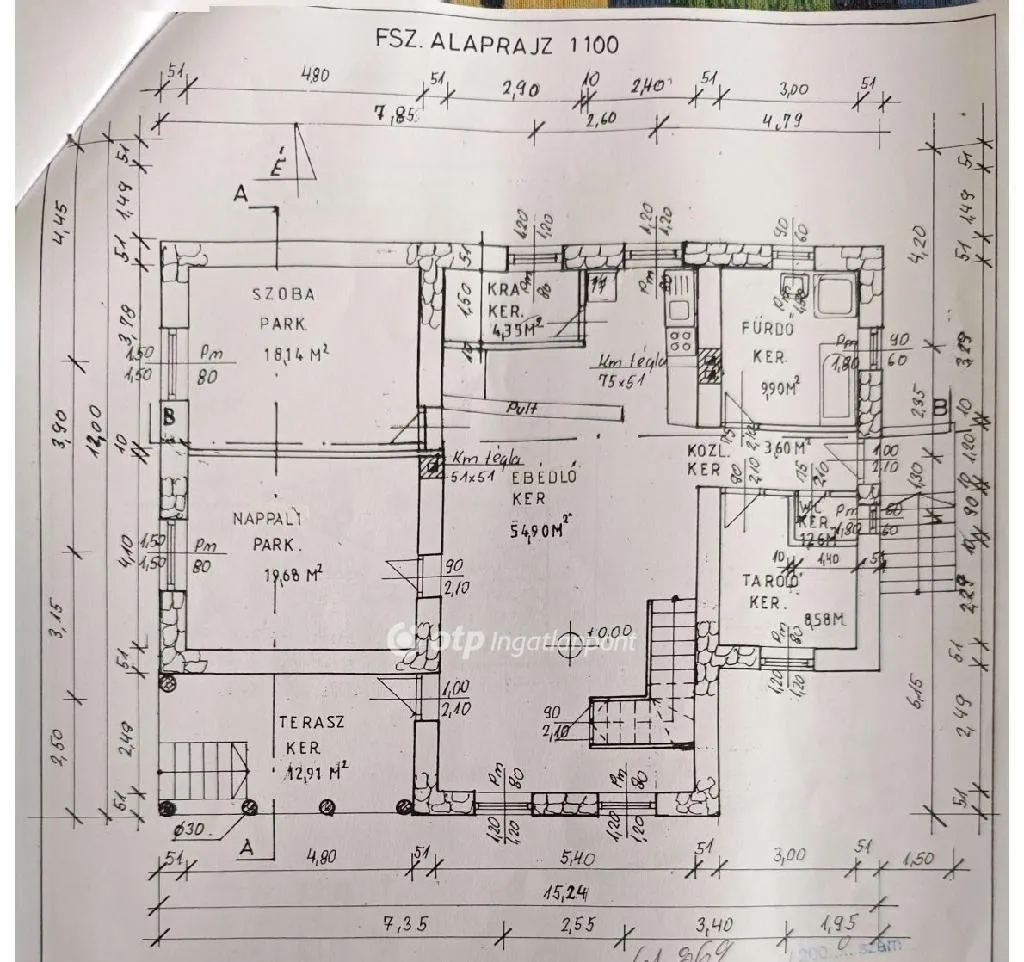 FSZ. ALAPRAJZ 1100
51 4,80 51 2,90 10 2,40 51 3,00 51
7,85 2,60 4,79
É
A
51 1,49 51 3,78 10 4,10 51 2,49 51
12,00
4,45 3,90 3,15 2,50
SZOBA
PARK.
18,14 M²
1,50
1,50
Pm
80
B
KRA
KER.
4,35 M²
1,50
51
10
1,20
1,20
Pm
80
1,20
1,20
Pm
80
90
60
Km tégla
75x51
Pult
FÜRDŐ
KER.
9,90 M²
Pm
1,80
90
60
75
2,10
KÖZL.
KER
3,60 M²
1,00
2,10
90
2,10
75
2,10
Km tégla
51x51
EBÉDLŐ
KER
54,90 M²
NAPPALI
PARK.
19,68 M²
1,50
1,50
Pm
80
90
2,10
WC
KER.
1,26 M²
Pm
1,80
60
60
10 1,40 51
TÁROLÓ
KER.
8,58 M²
Pm
80
1,20
1,20
±0.00
otp Ingatlanpont
1,00
2,10
90
2,10
TERASZ
KER.
12,91 M²
Ø30
A
Pm
80
1,20
1,20
Pm
80
1,20
1,20
4,20 2,35 1,30 6,15
B
51 1,49 51 3,29 10 1,20 10 90 10 2,29 51 2,49 51
51 4,80 51 5,40 51 3,00 51 1,50
15,24
7,35 2,55 3,40 1,95
szám